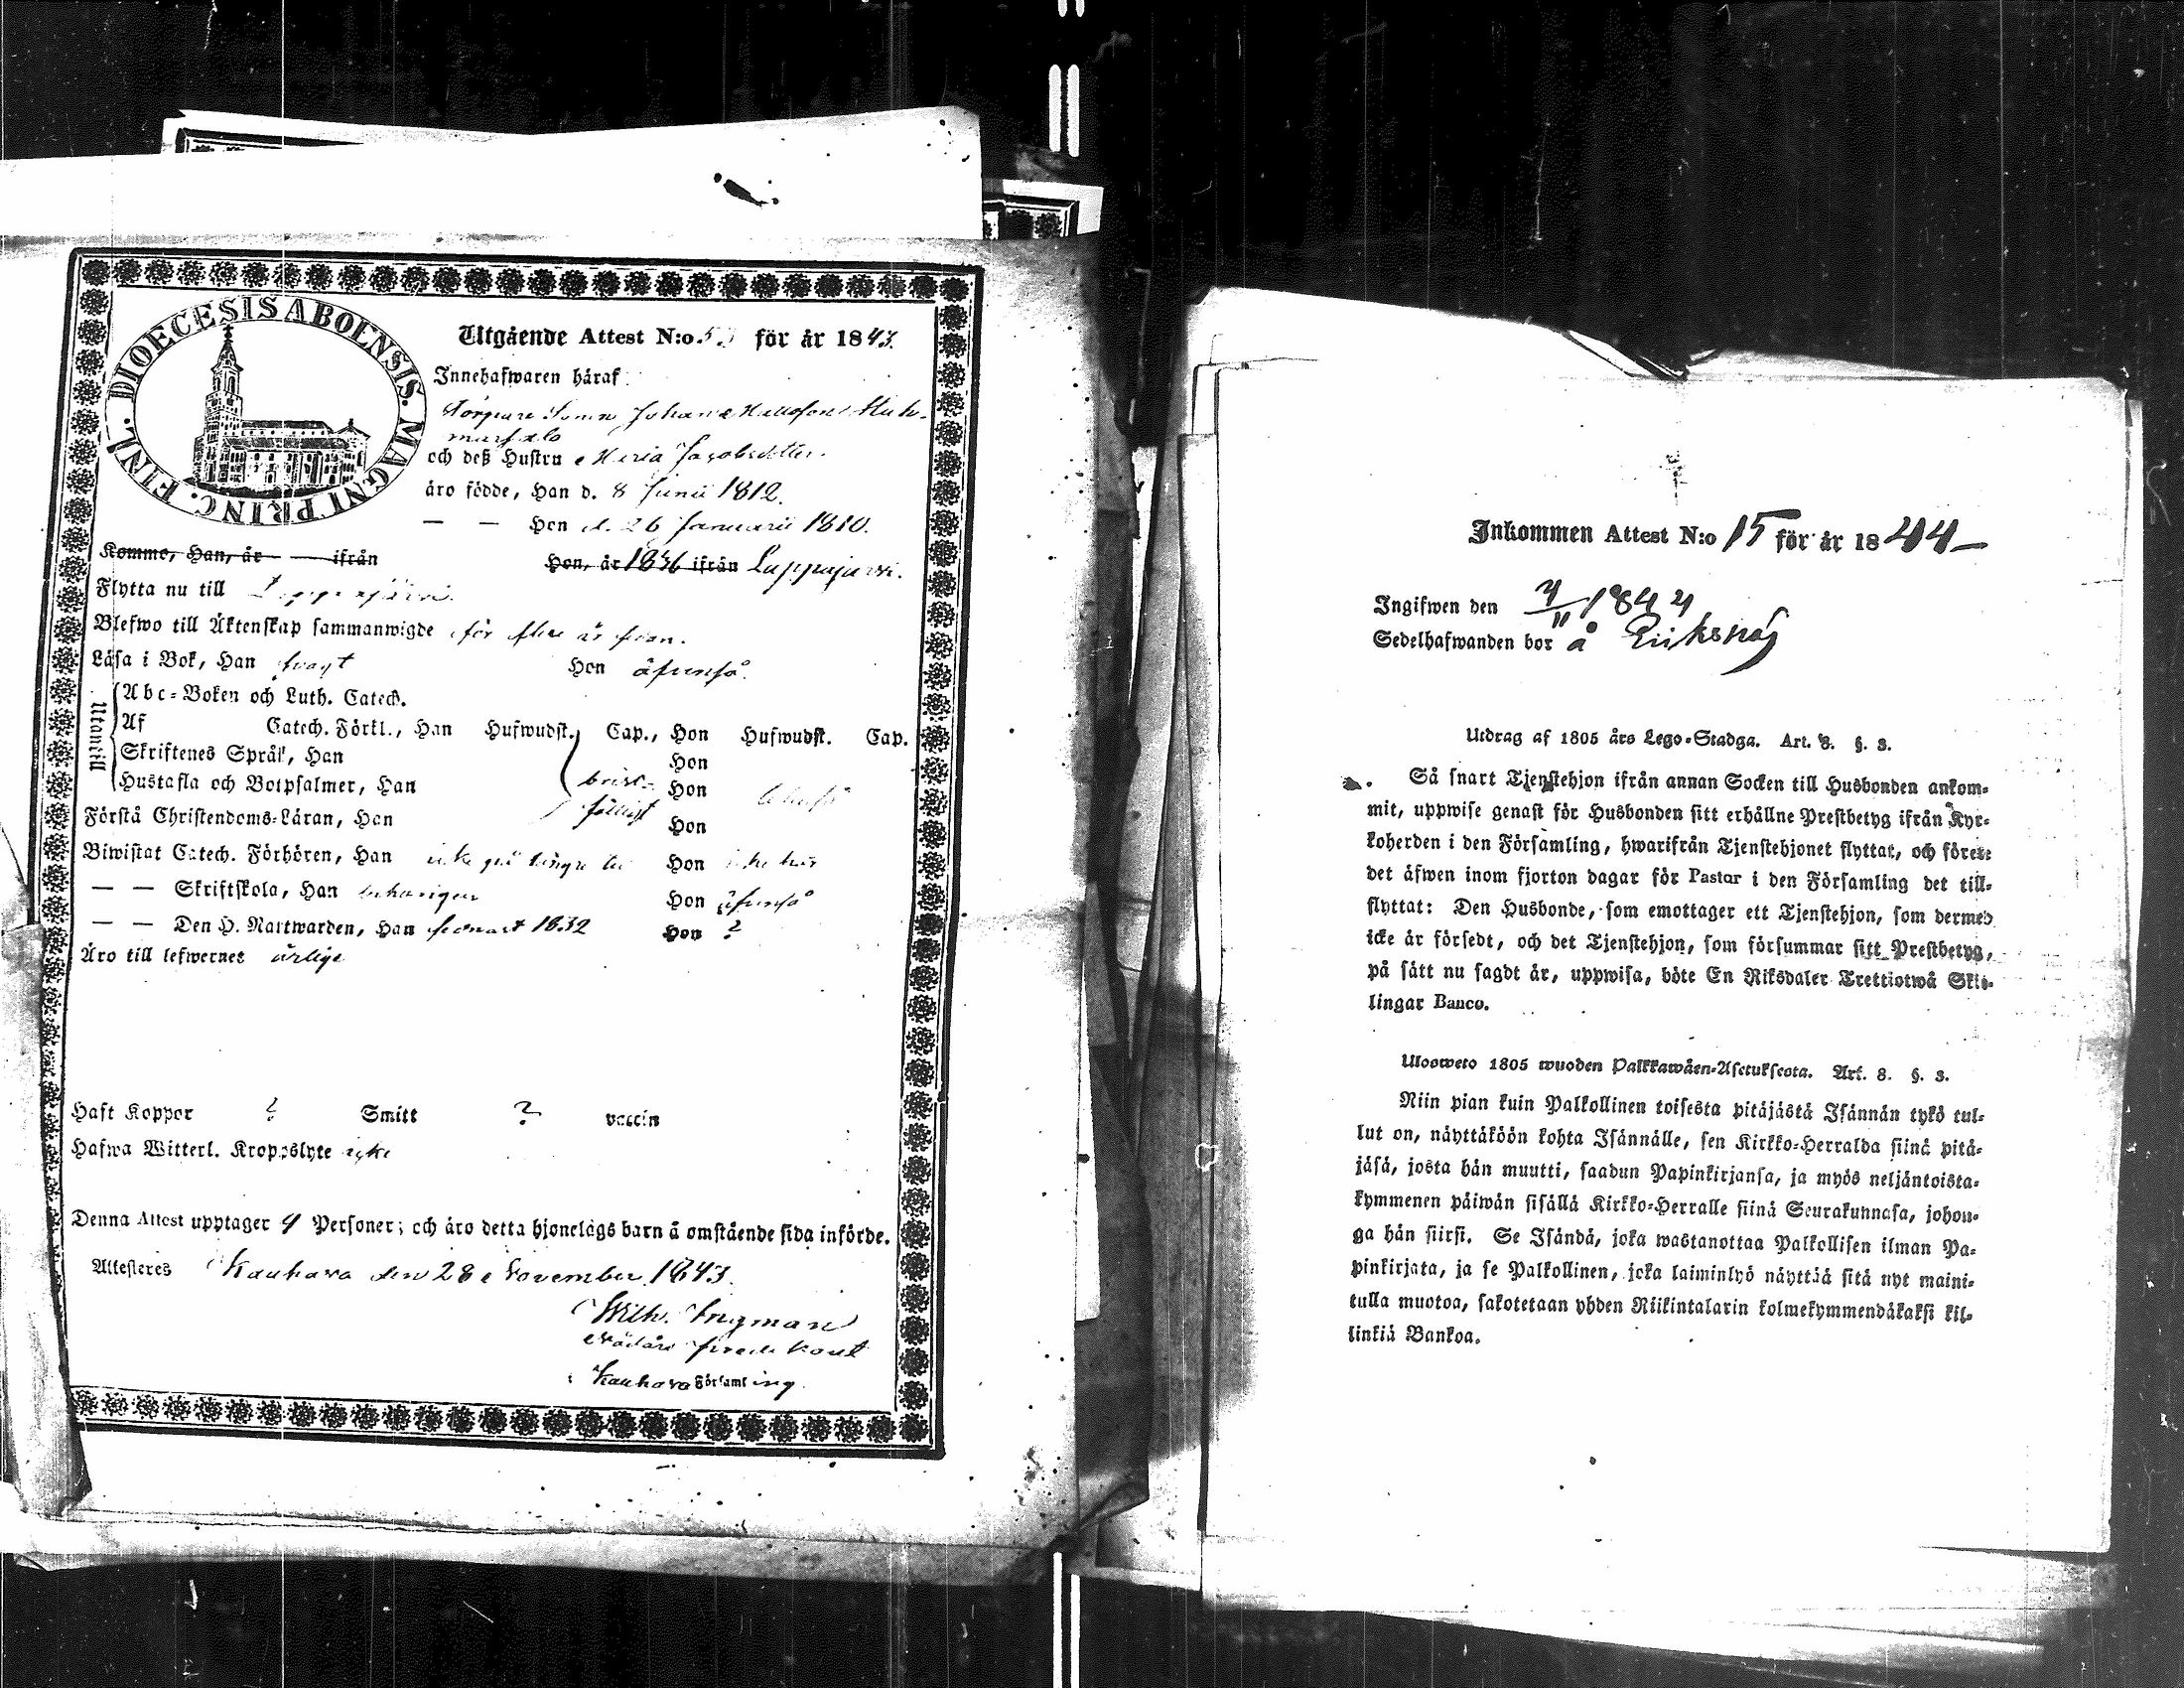 DIOECESIS ABOENSIS. MAGNI PRINC. FINL.
Utgående Attest N:o för år 1843.
Innehafwaren häraf
Torpare Sonen Johan Mattsson
och deß Hustru Maria Jacobsdotter.
äro födde, Han d. 8 Junii 1812.
— — Hon d. 26 Januarii 1810.
Komme, Han, år — ifrån Hon, år 1836 ifrån Lappajärvi.
Flytta nu till Lappajärvi.
Blefwo till Äktenskap sammanwigde för flere år sedan.
Läsa i Bok, Han svagt Hon äfvenså.
Utantill
Abc-Boken och Luth. Catech.
Af Catech. Förkl., Han Hufwudst. Cap., Hon Hufwudst. Cap.
Skriftenes Språk, Han Hon
Hustafla och Botpsalmer, Han brist- Hon likaså
Förstå Christendoms-Läran, Han fälligt Hon
Biwistat Catech. Förhören, Han icke på längre tid Hon icke här
— — Skriftskola, Han behörigen Hon äfvenså
— — Den H. Nattwarden, Han senast 1832 Hon ?
Äro till lefwernes ärlige
Haft Koppor ? Smitt ? vaccin
Hafwa Witterl. Kroppslyte icke
Denna Attest upptager 4 Personer; och äro detta hjonelags barn å omstående sida införde.
Attesteres Kauhava den 28 November 1843.
Wilh. Ingman
Nådårs predikant
Kauhava Församling.
Inkommen Attest N:o 15 för år 1844
Ingifwen den 4/11 1844
Sedelhafwanden bor å
Utdrag af 1805 års Lego-Stadga. Art. 8. §. 3.
Så snart Tjenstehjon ifrån annan Socken till Husbonden ankom-
mit, uppwise genast för Husbonden sitt erhållne Prestbetyg ifrån Kyr-
koherden i den Församling, hwarifrån Tjenstehjonet flyttat, och förete
det äfwen inom fjorton dagar för Pastor i den Församling det till-
flyttat: Den Husbonde, som emottager ett Tjenstehjon, som dermed
icke är försedt, och det Tjenstehjon, som försummar sitt Prestbetyg,
på sätt nu sagdt är, uppwisa, böte En Riksdaler Trettiotwå Skil-
lingar Banco.
Uloswеto 1805 wuoden Palkkawäen-Asetuksesta. Art. 8. §. 3.
Niin pian kuin Palkollinen toisesta pitäjästä Isännän tykö tul-
lut on, näyttäköön kohta Isännälle, sen Kirkko-Herralda siinä pitä-
jäsä, josta hän muutti, saadun Papinkirjansa, ja myös neljäntoista-
kymmenen päiwän sisällä Kirkko-Herralle siinä Seurakunnasa, johon-
ga hän siirsi. Se Isändä, joka wastanottaa Palkollisen ilman Pa-
pinkirjata, ja se Palkollinen, joka laiminlyö näyttää sitä nyt maini-
tulla muotoa, sakotetaan yhden Riikintalarin kolmekymmendäkaksi kil-
linkiä Bankoa.